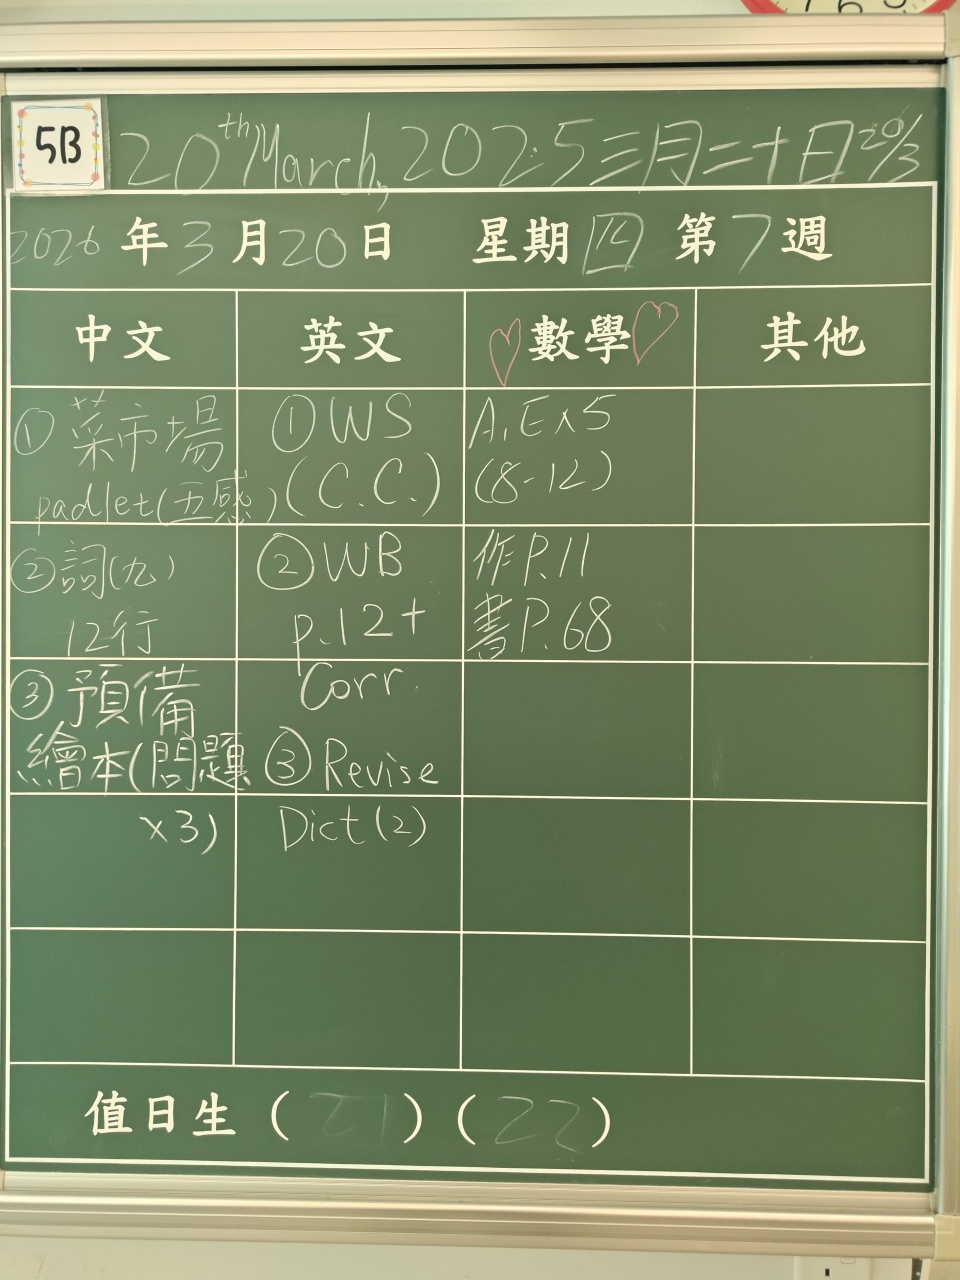 7 6 5
5B
20th March, 2025 三月二十日 20/3
2026年3月20日 星期四 第7週
中文 英文 數學 其他
① 菜市場
padlet(五感)
② 詞(九)
12行
③ 預備
繪本(問題
x3)
① WS
(C.C.)
② WB
p.12+
Corr.
③ Revise
Dict(2)
A.Ex5
(8-12)
作P.11
書P.68
值日生 (21) (22)